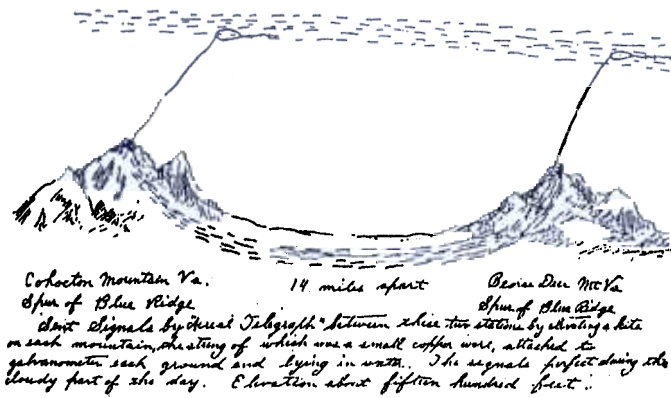 Cohocton Mountain Va.
14 miles apart
Spur of Blue Ridge
Beorse Deer Mt Va
Spur of Blue Ridge
Sent Signals by "Aerial Telegraph" between these two stations by elevating a kite
on each mountain, the string of which was a small copper wire, attached to
galvanometer each ground and lying in water. The signals perfect during the
cloudy part of the day. Elevation about fifteen hundred feet.